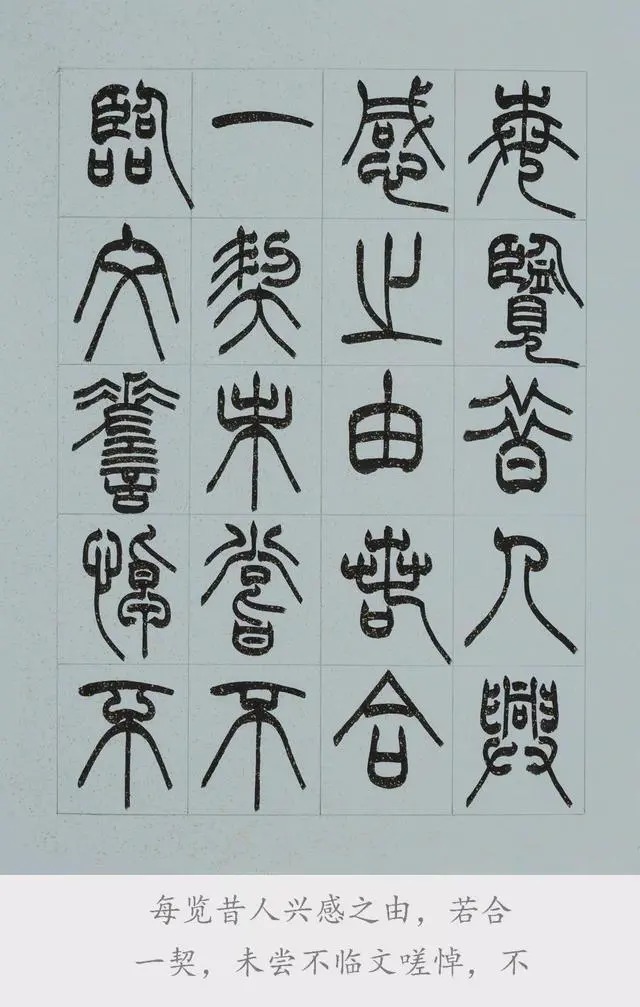 每覽昔人興
感之由若合
一契未嘗不
臨文嗟悼不
每览昔人兴感之由，若合
一契，未尝不临文嗟悼，不